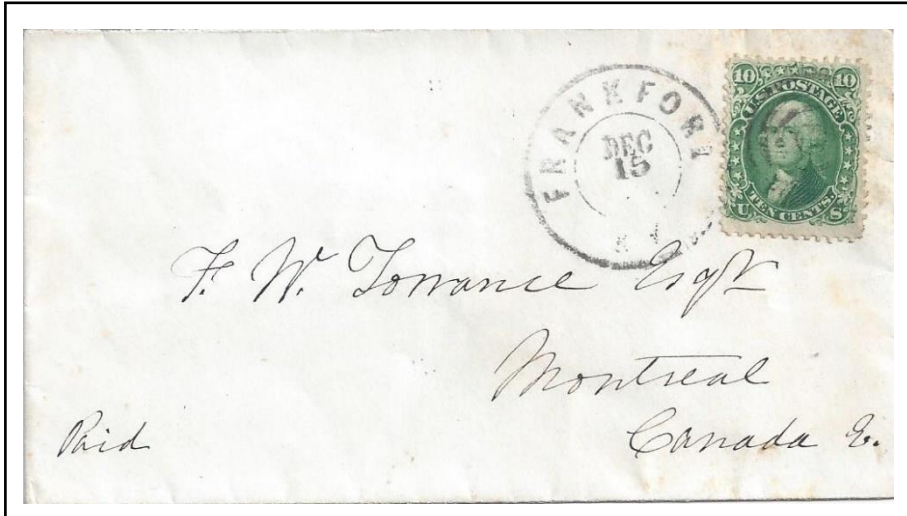 FRANKFORT
DEC
15
KY
10 10
U.S. POSTAGE
TEN CENTS.
U S
F. W. Torrance Esqr
Montreal
Canada E.
Paid